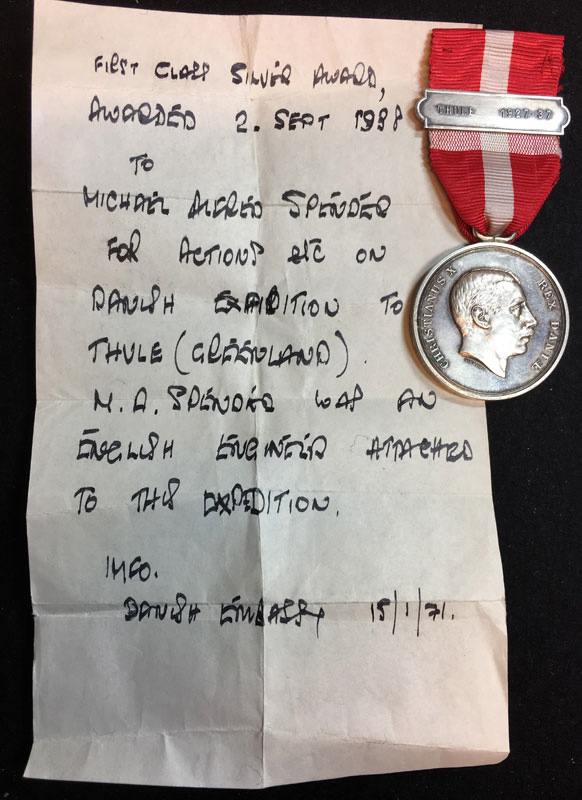 FIRST CLASS SILVER AWARD,
AWARDED 2. SEPT 1938
TO
MICHAEL ALFRED SPENDER
FOR ACTIONS ETC ON
DANISH EXPEDITION TO
THULE (GREENLAND).
M. A. SPENDER WAS AN
ENGLISH ENGINEER ATTACHED
TO THIS EXPEDITION.
INFO.
DANISH EMBASSY 15/1/71.
THULE 1927-37
CHRISTIANUS X REX DANIÆ